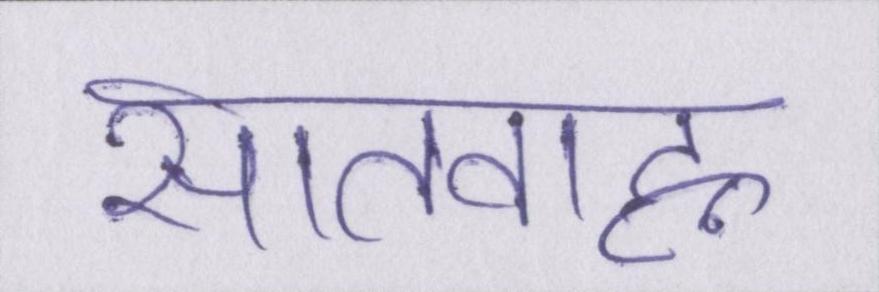 सातवाह्न